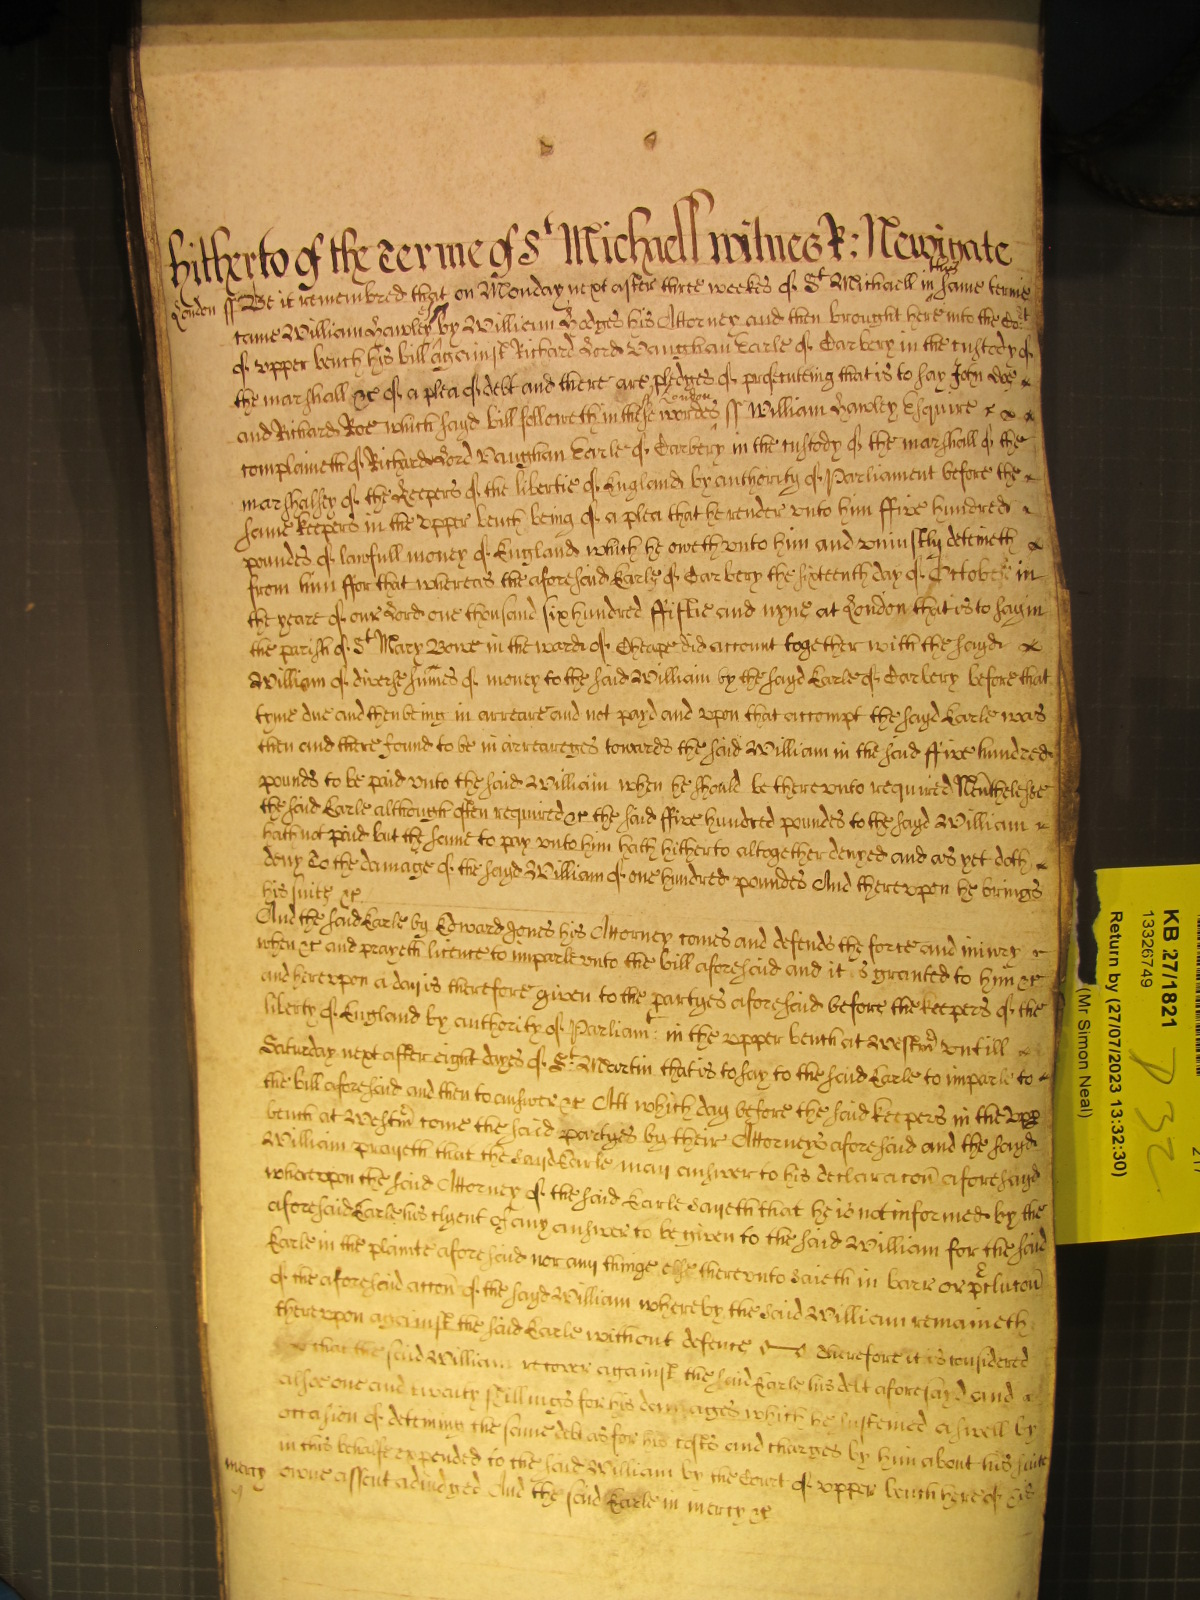 hitherto of the Terme of St Michaell witnes R: Newdigate
London ss Be it remembred that on Monday next after three weekes of St Michaell in this same terme
came William Lawley by William Hodges his Attorney and then brought here into the Cort
of vpper bench his bill against Richard Lord Vaughan Earle of Carbery in the custody of
the marshall &c of a plea of debt and there are pledges of prosecuteing that is to say John Doe
and Richard Roe which sayd bill followeth in these wordes ss London William Lawley Esquire
complaineth of Richard Lord Vaughan Earle of Carbery in the custody of the marshall of the
marshalsey of the Keepers of the libertie of England by authority of Parliament before the
same keepers in the vpper bench being of a plea that he render vnto him ffive hundred
poundes of lawfull money of England which he oweth vnto him and vniustly deteineth
from him ffor that whereas the aforesaid Earle of Carbery the sixteenth day of October in
the yeare of our Lord one thousand six hundred ffiftie and nyne at London that is to say in
the parish of St Mary Bowe in the ward of Cheape did account together with the sayd
William of diverse sumes of money to the said William by the sayd Earle of Carbery before that
tyme due and then being in arreare and not payd and vpon that accompt the sayd Earle was
then and there found to be in arreareges towards the said William in the said ffive hundred
pounds to be paid vnto the said William when he should be therevnto required Neuthelesse
the said Earle although often required &c the said ffive hundred poundes to the sayd William
hath not paid but the same to pay vnto him hath hitherto altogether denyed and as yet doth
deny To the damage of the sayd William of one hundred poundes And therevpon he brings
his suite &c
And the said Earle by Edward Jones his Attorney comes and defends the force and iniury
when &c and prayeth licence to imparle vnto the bill aforesaid and it is granted to him &c
and herevpon a day is therefore given to the partyes aforesaid before the keepers of the
liberty of England by authority of Parliamt: in the vpper bench at Westmr vntill
Saturday next after eight dayes of St Martin that is to say to the said Earle to imparle to
the bill aforesaid and then to answer &c Att which day before the said keepers in the vpp
bench at Westmr come the said partyes by their Attorneys aforesaid and the sayd
William prayeth that the sayd Earle may answer to his declaracon aforesayd
wherevpon the said Attorney of the said Earle sayeth that he is not informed by the
aforesaid Earle his clyent of any answer to be given to the said William for the said
Earle in the plainte aforesaid nor any thinge else therevnto saieth in barr or pclucon
of the aforesaid accon of the sayd William whereby the said William remaineth
therevpon against the said Earle without defence Therefore it is considered
that the said William recover against the said Earle his debt aforesayd and
alsoe one and twenty shillings for his damages which he susteined aswell by
occasion of deteining the same debt as for his costs and charges by him about his suite
in this behalfe expended to the said William by the Court of vpper bench here of his
mercy owne assent adiudged And the said Earle in mercy &c
KB 27/1821
13326749
Return by (27/07/2023 13:32:30)
(Mr Simon Neal)